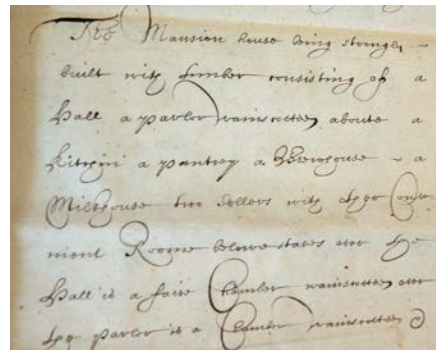 The Mansion house being strongly
built with timber consisting of a
Hall a parlor wainscotted aboute a
Kitchin a pantrey a Brewhouse - a
Milkhouse two Sellers with other Conve
nient Roome belowe staires over the
Hall is a faire Chamber wainscotted over
the parlor is a Chamber wainscotted